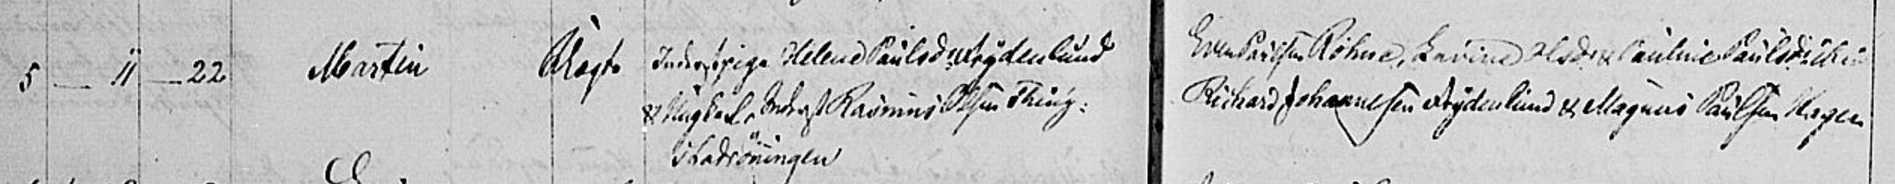 5 — 11 — 22 Martin Uægte Inderstpige Helene Paulsd. Frydenlund
& Ungkarl, Inderst Rasmus Olsen Thing:
i Ladröningen
Even Paulsen Röhne, Lavine Olsd. & Pauline Paulsd.
Richard Johannesen Frydenlund & Magnus Paulsen Hagen